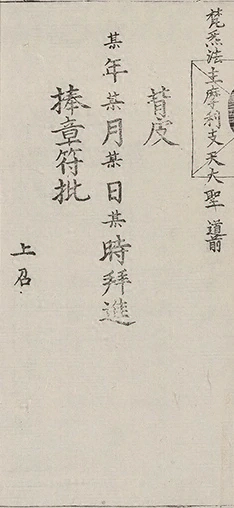 梵炁法主摩利支天大聖 道前
背皮
某年某月某日某時拜進
捧章符批
上召